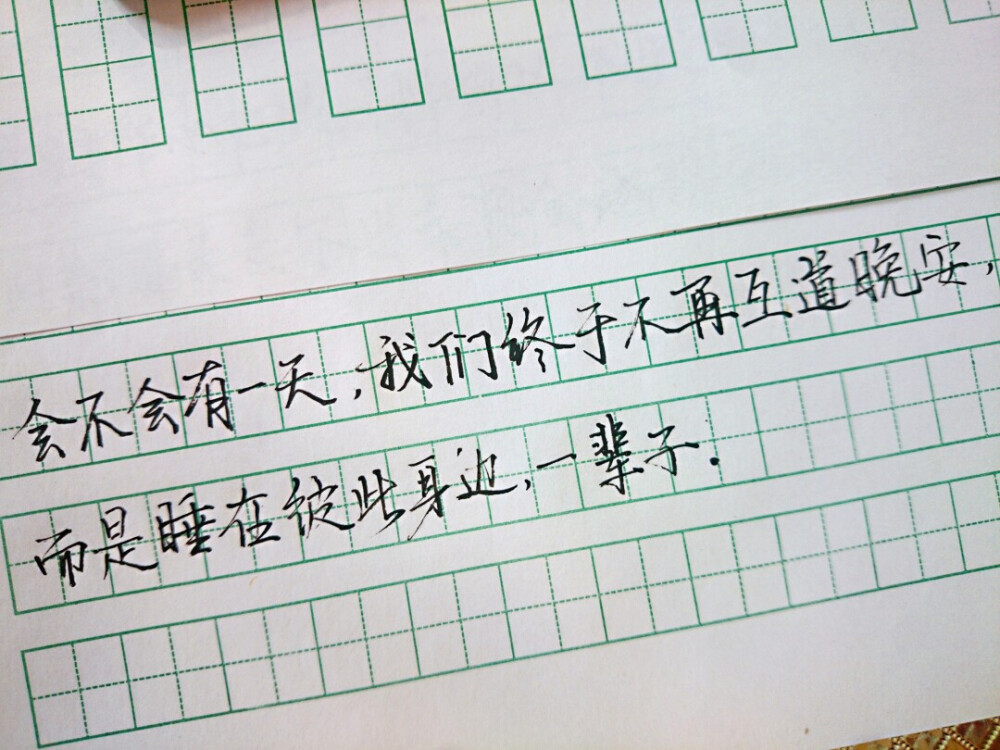 会不会有一天,我们终于不再互道晚安,
而是睡在彼此身边,一辈子.